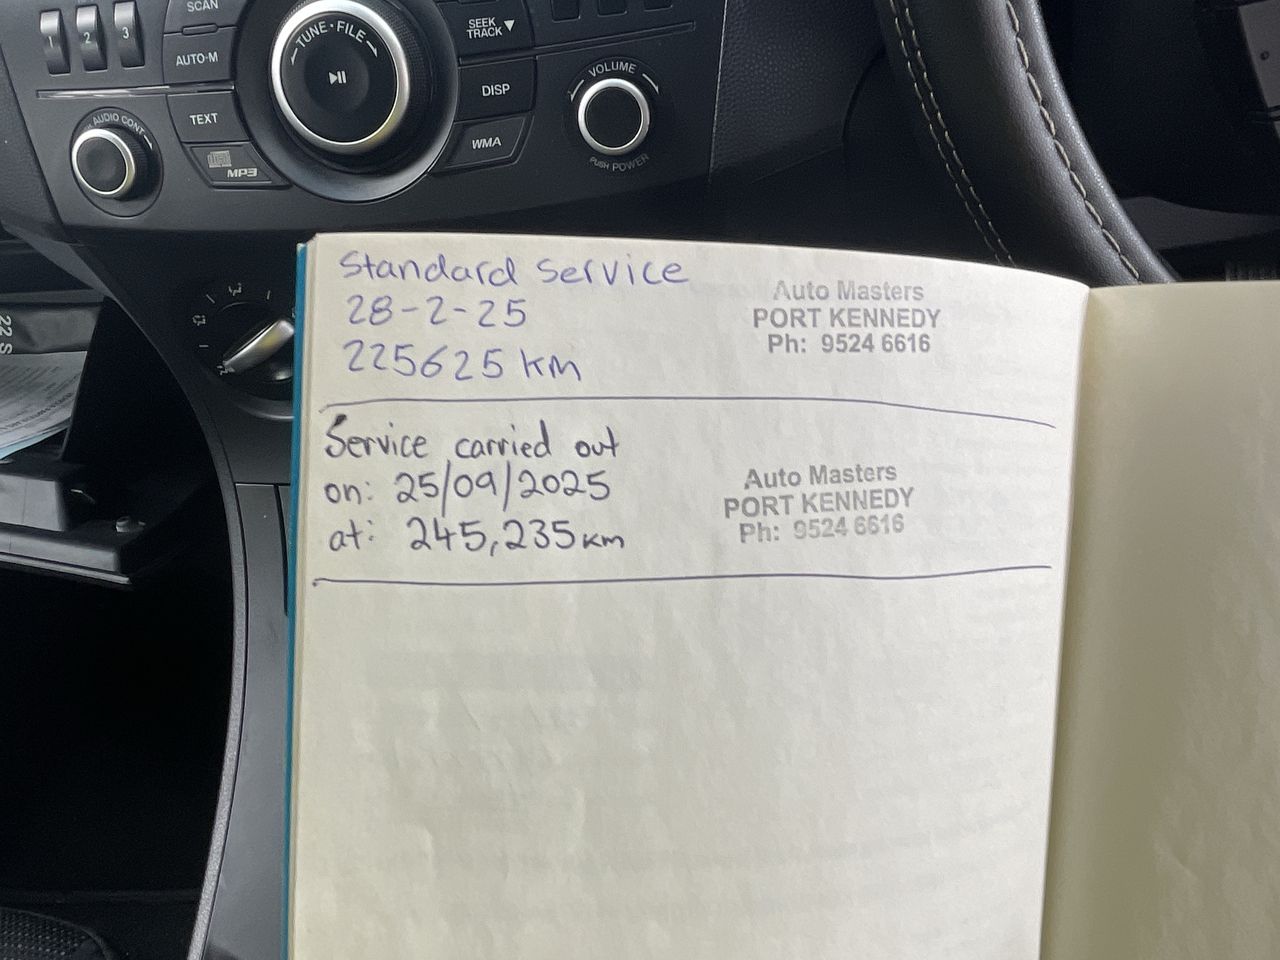 SCAN
1 2 3
AUTO-M
TUNE • FILE
SEEK
TRACK
DISP
VOLUME
AUDIO CONT
TEXT
WMA
MP3
PUSH POWER
Standard Service
28-2-25
225625 KM
Auto Masters
PORT KENNEDY
Ph: 9524 6616
Service carried out
on: 25/09/2025
at: 245,235 KM
Auto Masters
PORT KENNEDY
Ph: 9524 6616
22 S